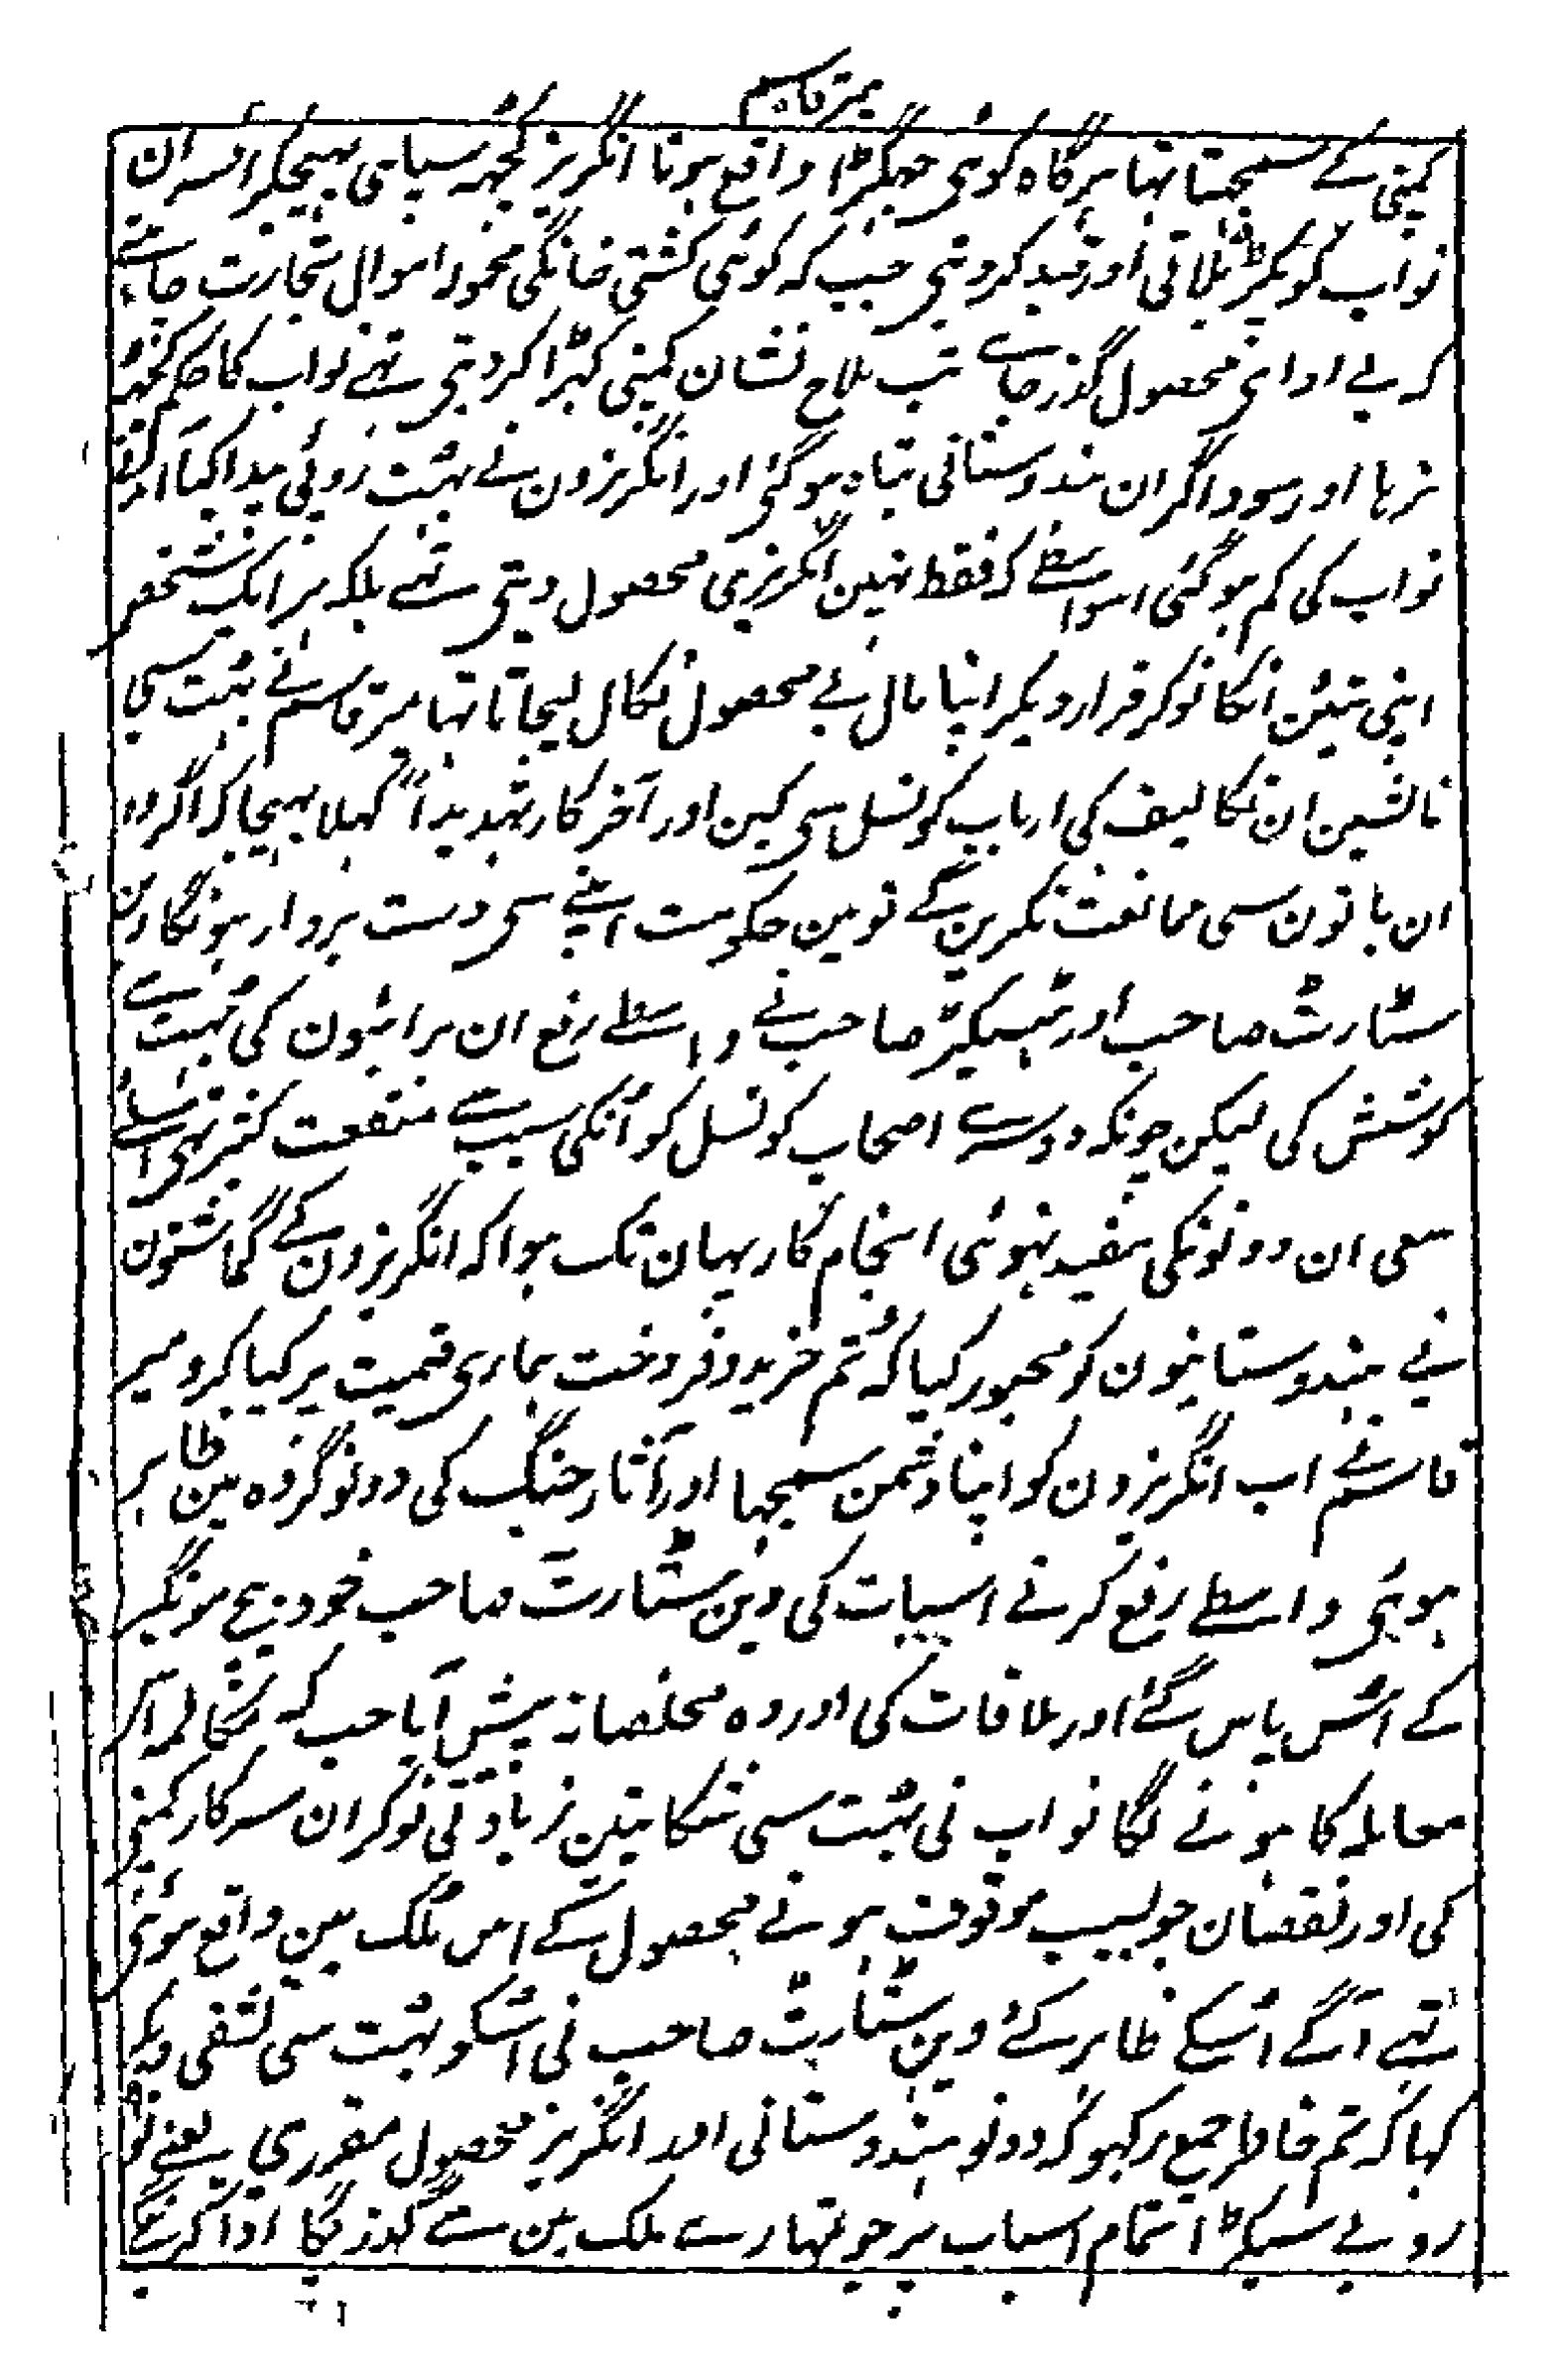 میر قاسم
کمپنی کے سمجھتا تہا ہرگاہ کوئی جہگڑا واقع ہوتا انگریز کچہہ سپاہی بہیجکر افسران
نواب کو پکڑ بلاتی اور قید کر دیتی جب کہ کوئی کشتی خانگی محمود اموال تجارت چاہتے
کہ بے ادای محصول گذر جاے تب ملاح نشان کمپنی کہڑا کر دیتی تہے نواب کا حکم کچہہ
نرہا اور سوداگران ہندوستانی تباہ ہوگئی اور انگریزون نے بہت روپئی پیدا کیا آمدنی
نواب کی کم ہو گئی اسواسطے کہ فقط نہین انگریزی محصول دیتی تہے بلکہ ہر ایک شخص
اپنی تئین انکا نوکر قرار دیکر اپنا مال بے محصول نکال لیجاتا تہا میر قاسم نے بہت سی
نالشین ان تکالیف کی ارباب کونسل سی کین اور آخر کار تہدیداً کہلا بہیجا کہ اگر وہ
ان باتون سی ممانعت نکرین گے تو مین حکومت اپنے سی دست بردار ہونگا وین
سٹارٹ صاحب اور ہیسٹنگز صاحب نے واسطے رفع ان برائیون کی بہت سے
کوشش کی لیکن چونکہ دوسرے اصحاب کونسل کو انکی سبب سے منفعت کثیر تہی اسلئے
سعی ان دونونکی مفید نہوئی انجام کار یہان تک ہوا کہ انگریزون کے گماشتون
نے ہندوستانیون کو مجبور کیا کہ تم خرید و فروخت ہماری قیمت پر کیا کرو میر
قاسم نے اب انگریزون کو اپنا دشمن سمجہا اور آثار جنگ کی دونو گروہ مین ظاہر
ہوئی واسطے رفع کرنے اسبات کی وین سٹارٹ صاحب خود بیچ مونگیر
کے اس پاس گئے اور ملاقات کی اور وہ مخلصانہ پیش آیا جب کہ مکالمہ اس
معاملہ کا ہونے لگا نواب نی بہت سی شکایتین زیادتی نوکران سرکار کمپنی
کی اور نقصان جو بسبب موقوف ہونے محصول کے اس ملک مین واقع ہوئی
تہے آگے اسکے ظاہر کئے وین سٹارٹ صاحب نی اسکو بہت سی تشفی دیکر
کہا کہ تم خاطر جمع رکہو کہ دونو ہندوستانی اور انگریز محصول مقرری یعنے نو
روپے سیکڑا تمام اسباب پر جو تمہارے ملک مین سے گذریگا ادا کرینگے